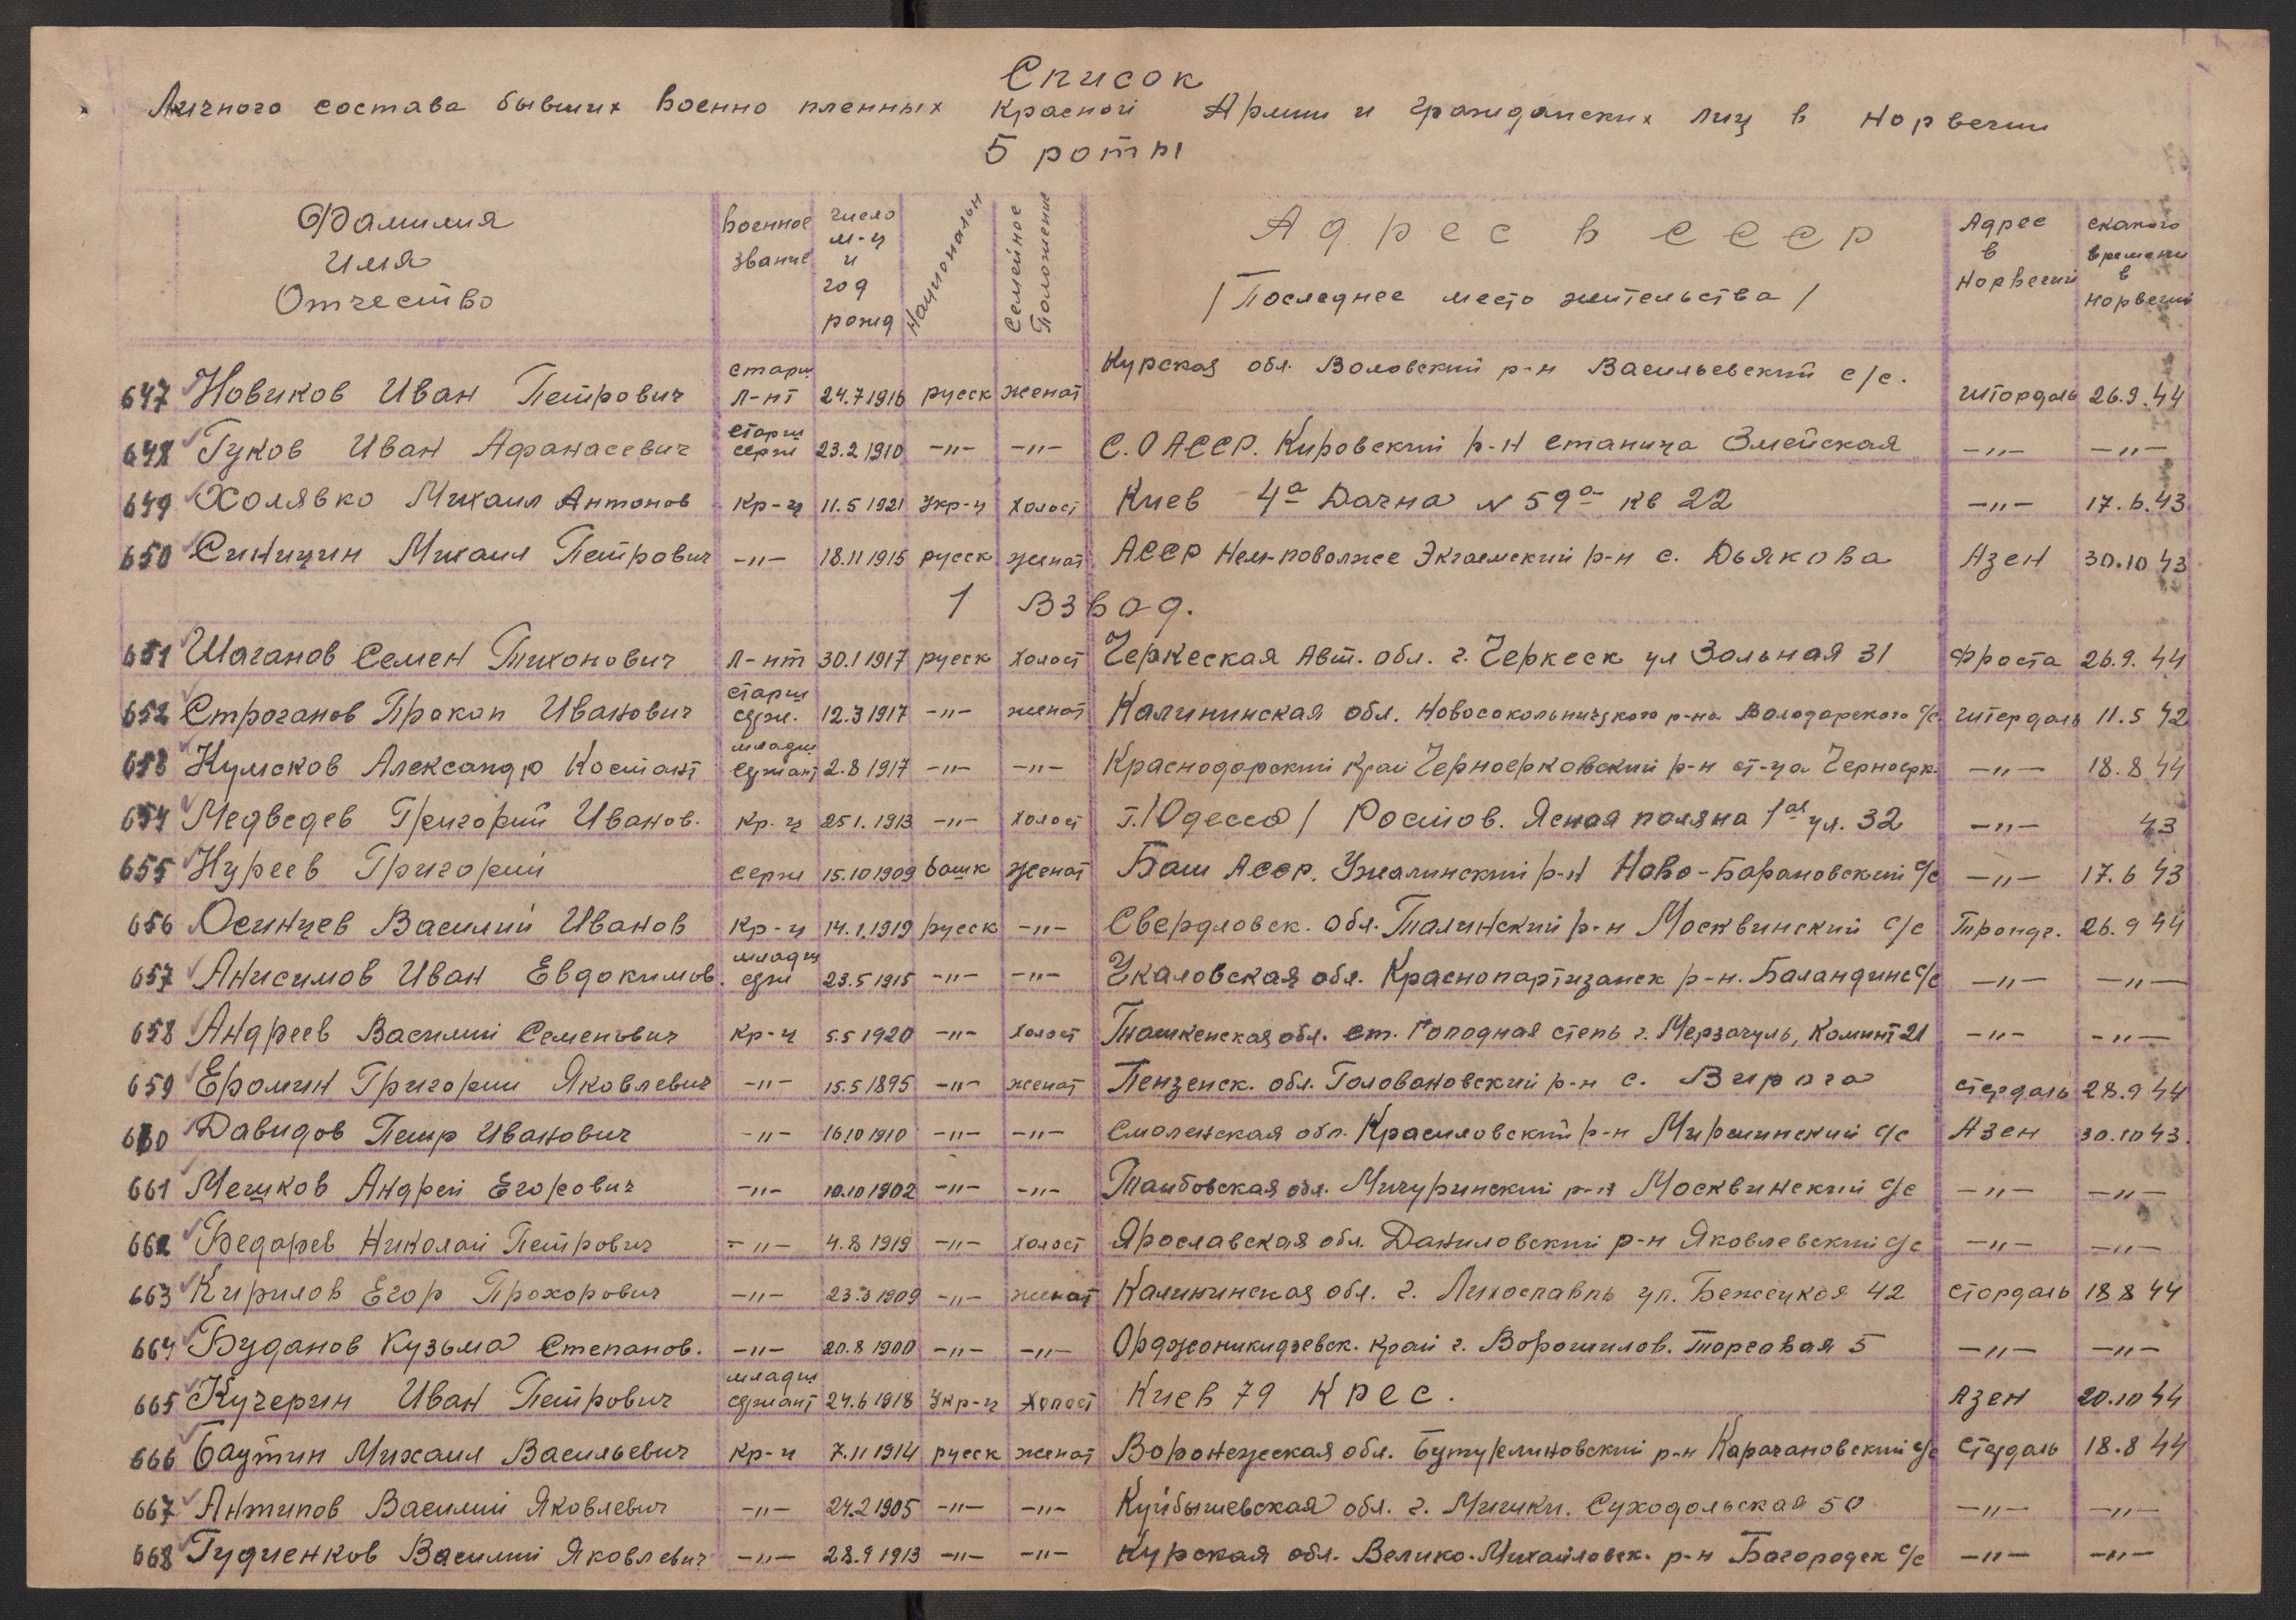 Список
Личного состава бывших военно пленных Красной Армии и гражданских лиц в Норвегии
5 роты
Фамилия Имя Отчество | Военное звание | число м-ц и год рожд | Национальн | Семейное Положение | Адрес в СССР /Последнее место жительства/ | Адрес в Норвегии | скакого времени в Норвегии
647 Новиков Иван Петрович старш л-нт 24.7 1916 русск женат Курская обл. Воловский р-н Васильевский с/с. Штордаль 26.9.44
648 Гуков Иван Афанасевич старш серж 23.2 1910 -"- -"- С.О АССР. Кировский р-н станица Змейская -"- -"-
649 Холявко Михаил Антонов кр-ц 11.5 1921 Укр-ц холост Киев 4а Дачна N 59а кв 22 -"- 17.6.43
650 Синицин Михаил Петрович -"- 18.11 1915 русск женат АССР Нем-поволжее Экгаемский р-н с. Дьякова Азен 30.10 43
1 Взвод.
651 Шаганов Семен Тихонович л-нт 30.1 1917 русск холост Черкеская Авт. обл. г. Черкеск ул Зольная 31 Фроста 26.9.44
652 Строганов Прокоп Иванович старш серж. 12.3 1917 -"- женат Калининская обл. Новосокольничукого р-на Володарского с/с Штердаль 11.5 42
653 Кумсков Александр Костант младш сержант 2.8 1917 -"- -"- Краснодарский край Черноерковский р-н ст-ца Черноерк. -"- 18.8 44
654 Медведев Григорий Иванов. кр-ц 25 1. 1913 -"- холост г./Одесса/Ростов. Ясная поляна 1ая ул. 32 -"- 43
655 Нуреев Григорий серж 15.10 1909 башк женат Баш АССР. Учалинский р-н Ново-Барановский с/с -"- 17.6 43
656 Осинцев Василий Иванов кр-ц 14.1.1919 русск -"- Свердловск. обл. Талинский р-н Москвинский с/с Трондг. 26.9 44
657 Анисимов Иван Евдокимов. младш серж 23.5 1915 -"- -"- Чкаловская обл. Краснопартизанск р-н. Баландинс с/с -"- -"-
658 Андреев Василий Семенович кр-ц 5.5 1920 -"- холост Ташкенская обл. ст. Голодная степь г. Мерзачуль, Коминт 21 -"- -"-
659 Еромин Григорий Яковлевич -"- 15.5 1895 -"- женат Пензенск. обл. Головановский р-н с. Вирога стердаль 28.9 44
660 Давидов Петр Иванович -"- 16.10 1910 -"- -"- Смоленская обл. Красиловский р-н Миршинский с/с Азен 30.10 43.
661 Мешков Андрей Егорович -"- 10.10 1902 -"- -"- Тамбовская обл. Мичуринский р-н Москвинский с/с -"- -"-
662 Бедарев Николай Петрович -"- 4.8 1919 -"- холост Ярославская обл. Даниловский р-н Яковлевский с/с -"- -"-
663 Кирилов Егор Прохорович -"- 23.3 1909 -"- женат Калининская обл. г. Лихославль ул. Бежецкая 42 Стордаль 18 8 44
664 Буданов Кузьма Степанов. -"- 20.8 1900 -"- -"- Орджоникидзевск. край г. Ворошилов. Торговая 5 -"- -"-
665 Кучерин Иван Петрович младш сержант 24.6 1918 Укр-ц холост Киев 79 Крес. Азен 20.10 44
666 Баутин Михаил Васильевич кр-ц 7.11 1914 русск женат Воронежеская обл. Бутурлиновский р-н Карачановский с/с Стердаль 18.8 44
667 Антипов Василий Яковлевич -"- 24.2 1905 -"- -"- Куйбышевская обл. г. Мишки. Суходольская 50 -"- -"-
668 Гудиенков Василий Яковлевич -"- 28.9 1913 -"- -"- Курская обл. Велико-Михайловск. р-н Богородск с/с -"- -"-